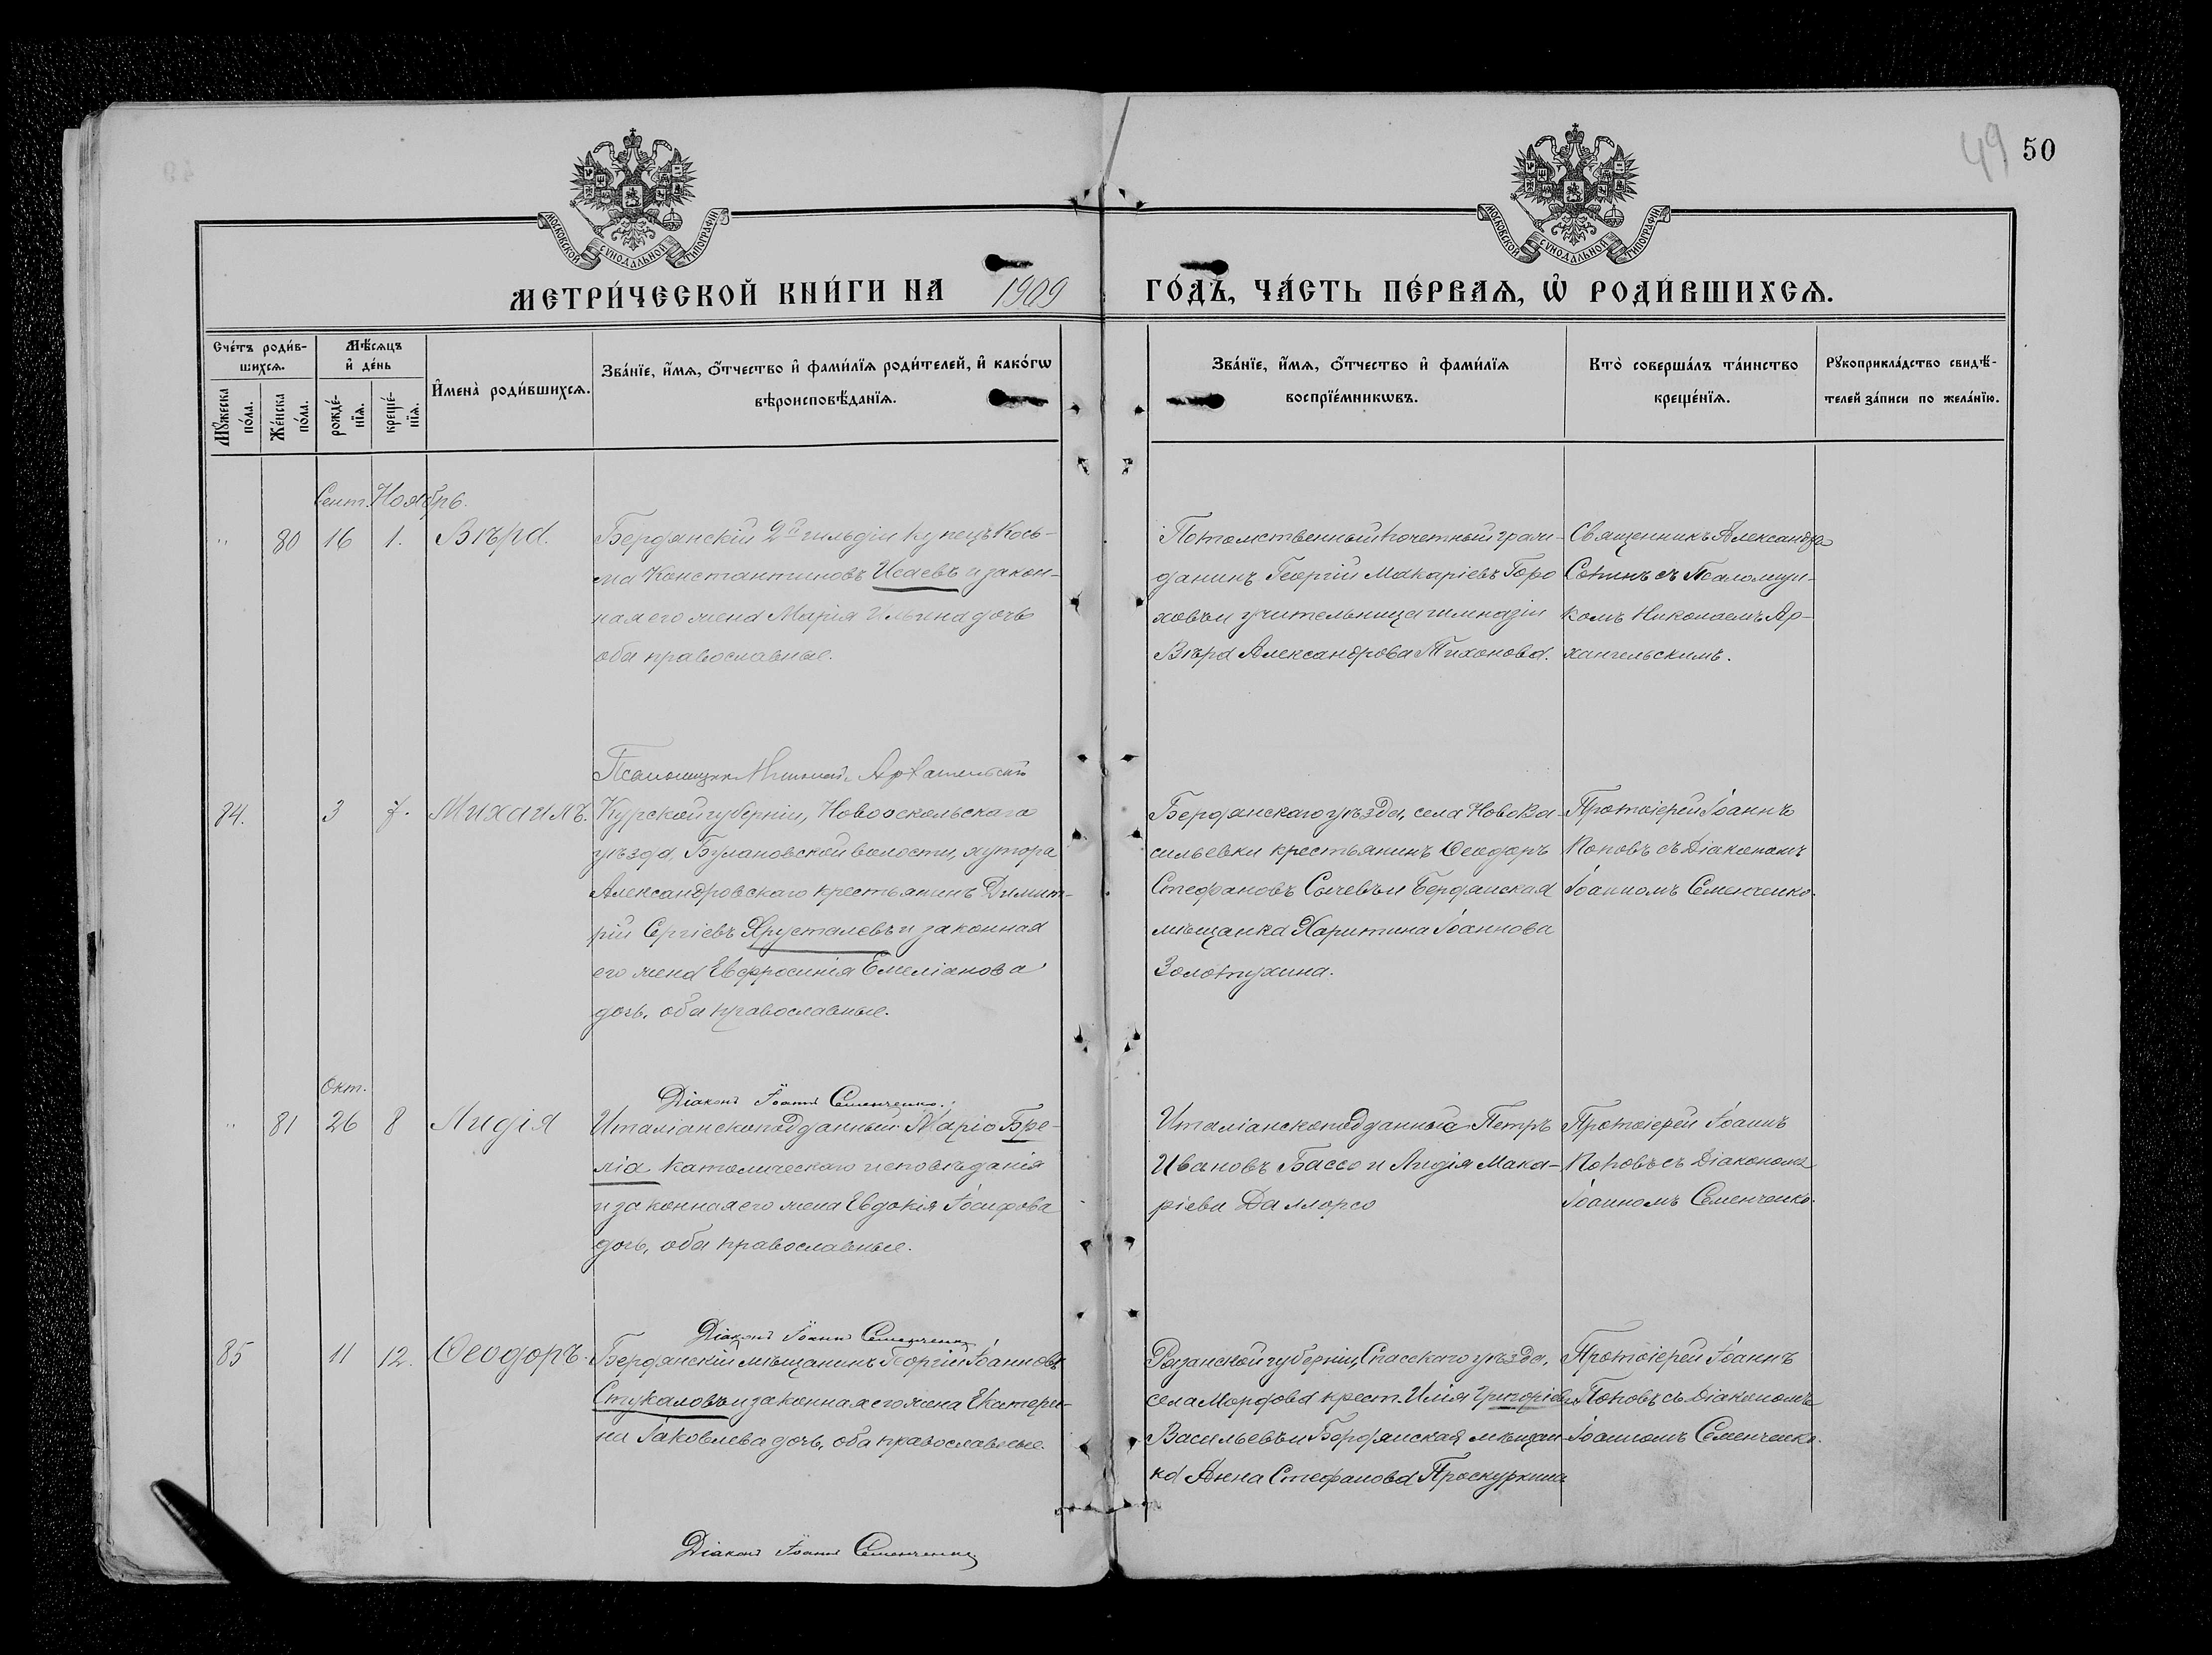 49 50
МОСКОВСКОЙ СѴНОДАЛЬНОЙ ТИПОГРАФІИ
МОСКОВСКОЙ СѴНОДАЛЬНОЙ ТИПОГРАФІИ
МЕТРИ́ЧЕСКОЙ КНИ́ГИ НА 1909 ГО́ДЪ, ЧА́СТЬ ПЕ́РВАѦ, Ѡ҆ РОДИ́ВШИХСѦ.
Сче́тъ роди́в-
шихсѧ.
Мꙋ́жеска
по́ла.
Же́нска
по́ла.
Мѣ́сяцъ
и҆ де́нь
рожде́-
нїѧ.
креще́-
нїѧ.
И҆мена̀ роди́вшихсѧ.
Зва́нїе, и҆́мѧ, ѻ҆́тчество и҆ фами́лїѧ роди́телей, и҆ како́гѡ
вѣроисповѣ́данїѧ.
Зва́нїе, и҆́мѧ, ѻ҆́тчество и҆ фами́лїѧ
воспрїе́мникѡвъ.
Кто̀ соверша́лъ та́инство
креще́нїѧ.
Рꙋкоприкла́дство свидѣ́-
телей за́писи по жела́нїю.
Сент. Ноябрь.
" 80 16 1. Вѣра
Бердянскій 2й гильдіи купецъ Кось-
ма Константиновъ Исаевъ и закон-
ная его жена Марія Ильина дочь
оба православные.
Потомственный почетный граж-
данинъ Георгій Макаріевъ Горо
ховъ и учительница гимназіи
Вѣра Александрова Тихонова.
Священникъ Александръ
Сотинъ съ Псаломщи-
комъ Николаемъ Ар-
хангельскимъ.
Псаломщикъ Николай Архангельскій
84. 3 7. Михаилъ.
Курской губерніи, Новооскольскаго
уѣзда, Булановской волости, хутора
Александровскаго крестьянинъ Димит-
рій Сергіевъ Хрусталевъ и законная
его жена Евфросинія Емеліанова
дочь, оба православные.
Бердянскаго уѣзда, села Новова-
сильевки крестьянинъ Ѳеодоръ
Стефановъ Сычевъ и Бердянская
мѣщанка Харитина Іоаннова
Золотухина.
Протоіерей Іоаннъ
Поповъ съ Діакономъ
Іоанномъ Семенченко.
Діаконъ Іоаннъ Семенченко.
Окт.
" 81 26 8 Лидія
Италіанскоподданный Маріо Бре-
ліа католическаго исповѣданія
и законная его жена Евдокія Іосифова
дочь, оба православные.
Италіанскоподданный Петръ
Ивановъ Бассо и Лидія Мака-
ріева Далморсо
Протоіерей Іоаннъ
Поповъ съ Діакономъ
Іоанномъ Семенченко.
Діаконъ Іоаннъ Семенченко
85 11 12. Ѳеодоръ.
Бердянскій мѣщанинъ Георгій Іоанновъ
Стукаловъ и законная его жена Екатери-
на Іаковлева дочь, оба православные.
Рязанской губерніи, Спасскаго уѣзда,
села Мордова крест. Илія Григоріевъ
Васильевъ и Бердянская мѣщан-
ка Анна Стефанова Проскурина
Протоіерей Іоаннъ
Поповъ съ Діакономъ
Іоанномъ Семенченко.
Діаконъ Іоаннъ Семенченко